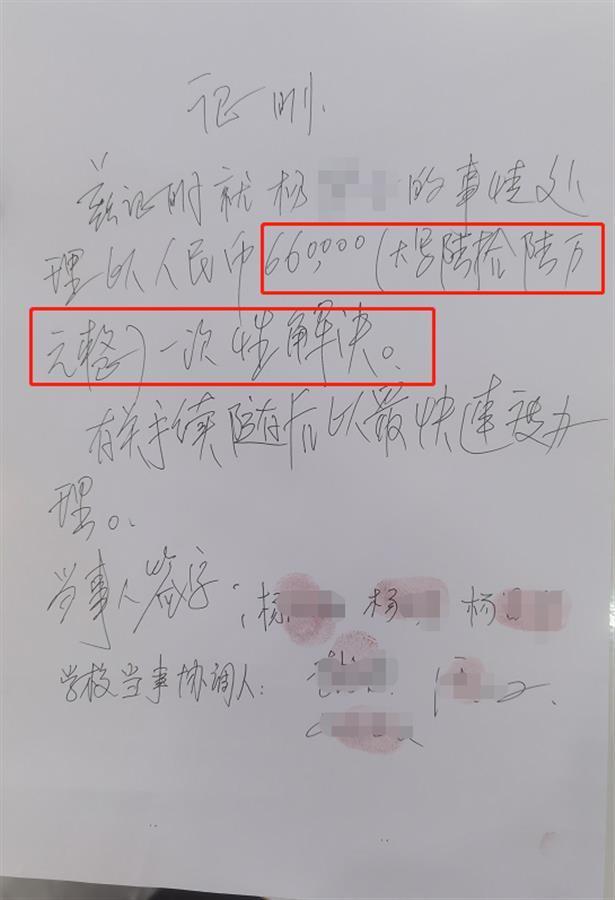 证明
兹证明就杨 的事情处
理以人民币660,000（大写陆拾陆万
元整）一次性解决。
有关手续随后以最快速度办
理。
当事人签字：杨 杨 杨
学校当事协调人：